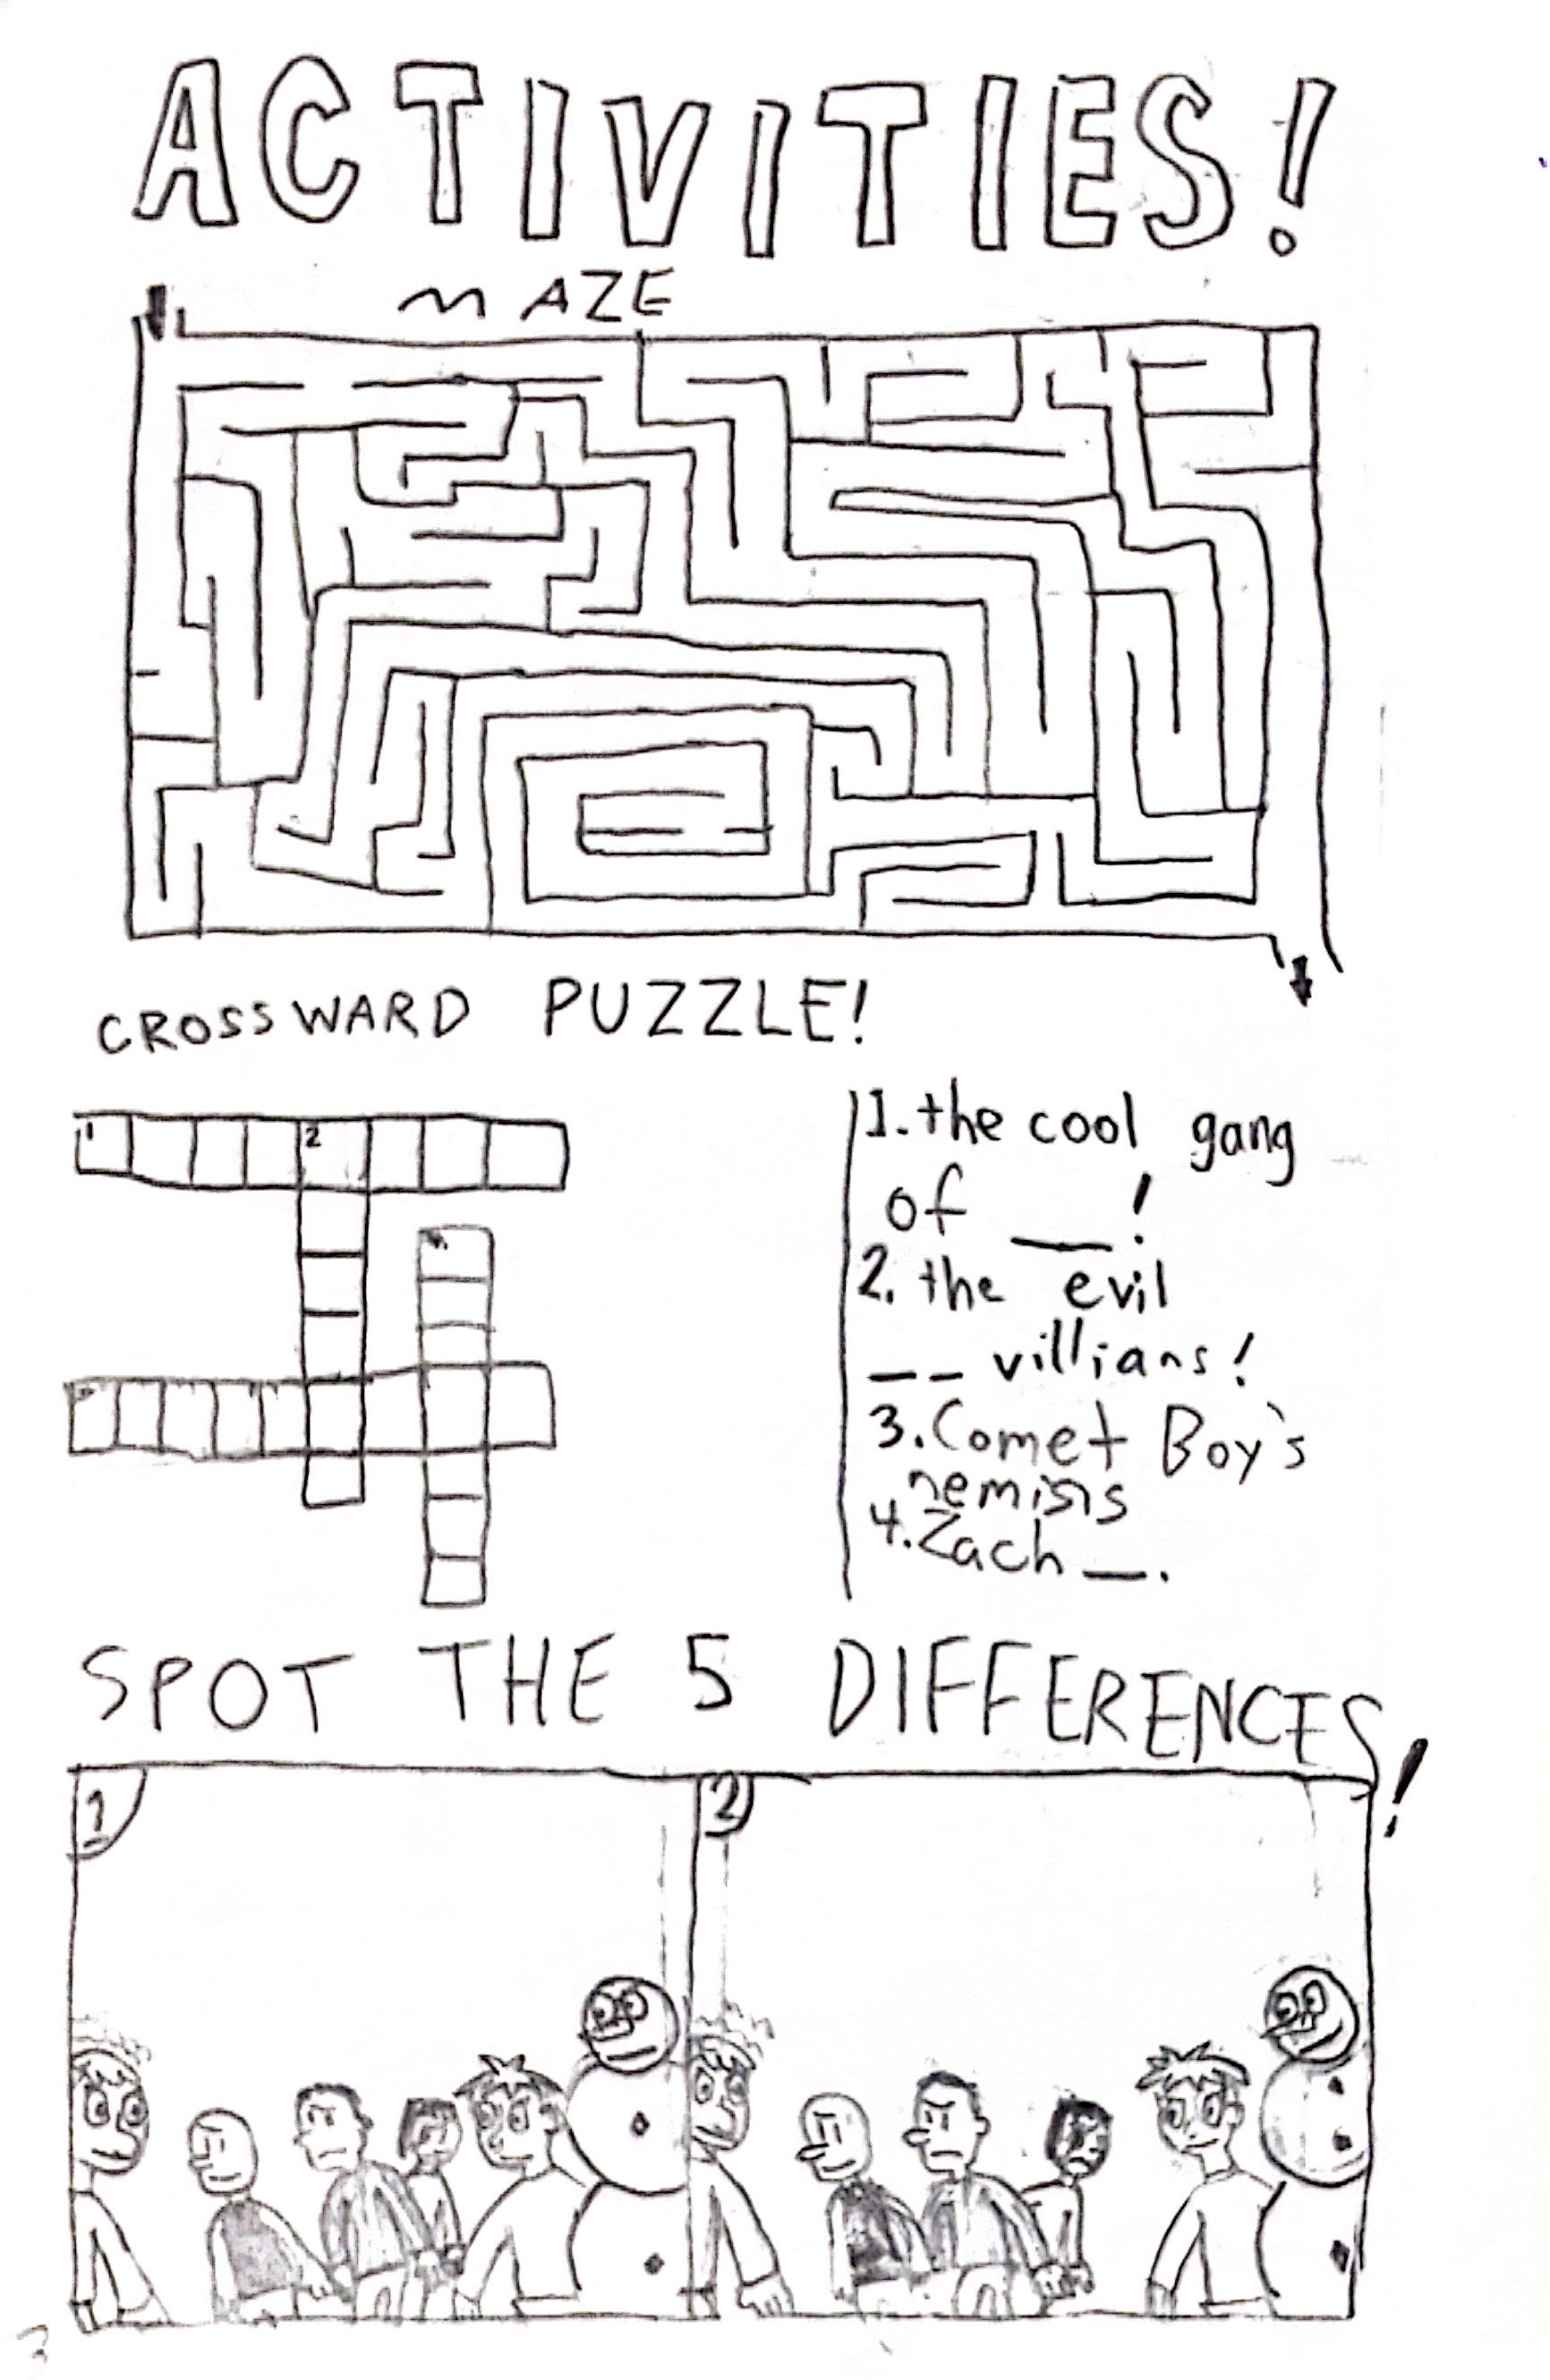 ACTIVITIES!
mAZE
CROSSWARD PUZZLE!
1
2
1. the cool gang
of __!
2. the evil
_ _ villians!
3. Comet Boy's
nemisis
4. Zach _.
SPOT THE 5 DIFFERENCES!
1
2